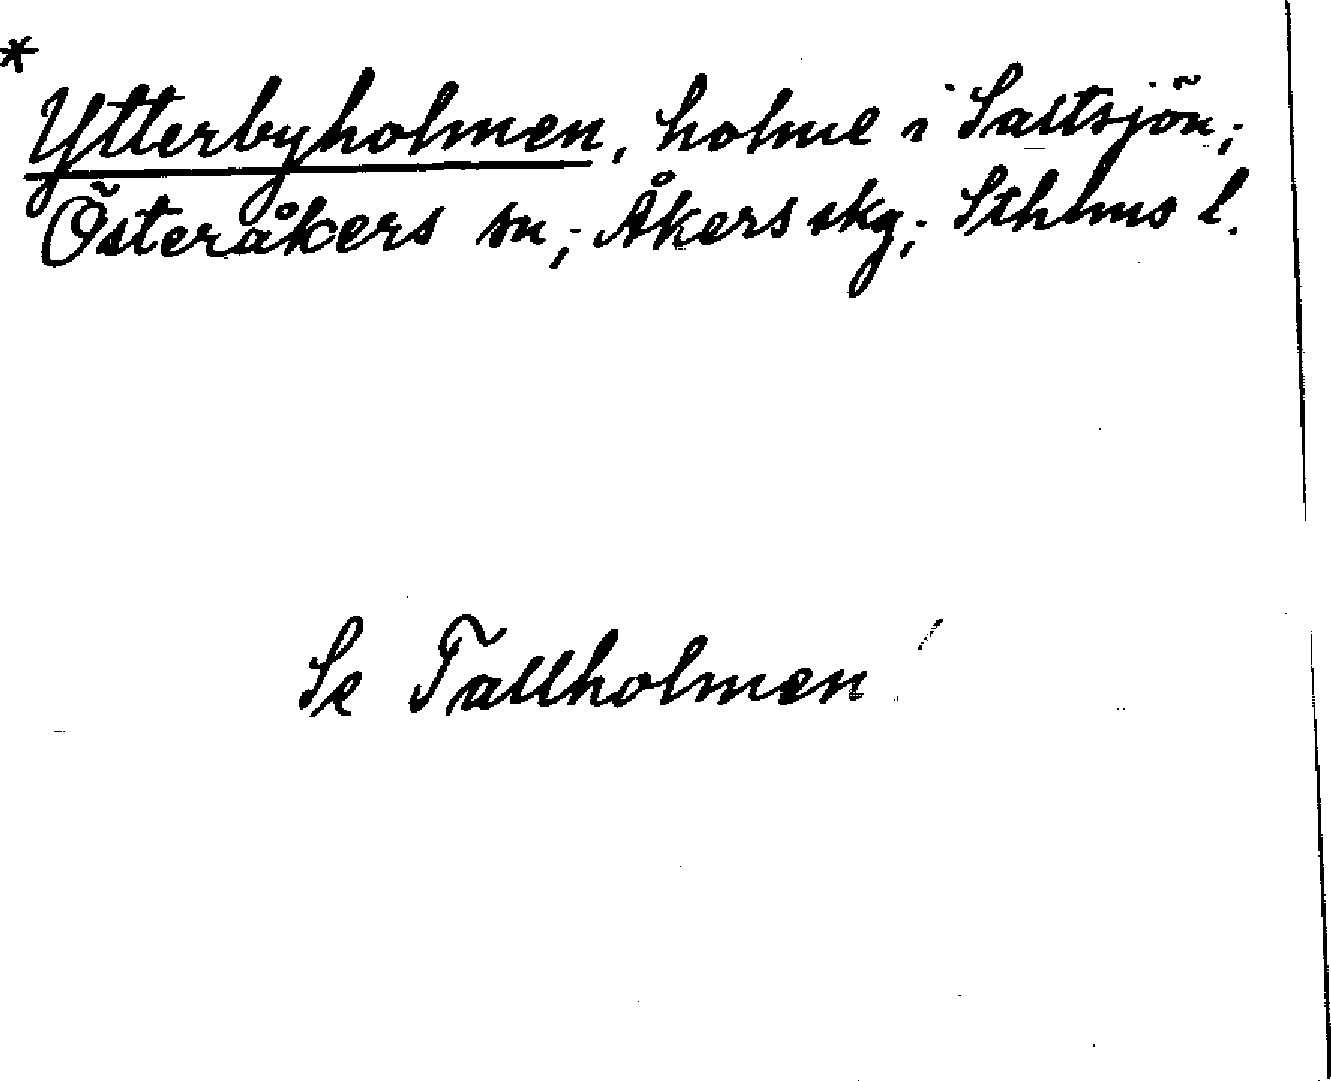 *
Ytterbyholmen, holme i Saltsjön;
Österåkers sn; Åkers skg; Sthlms l.
Se Tallholmen